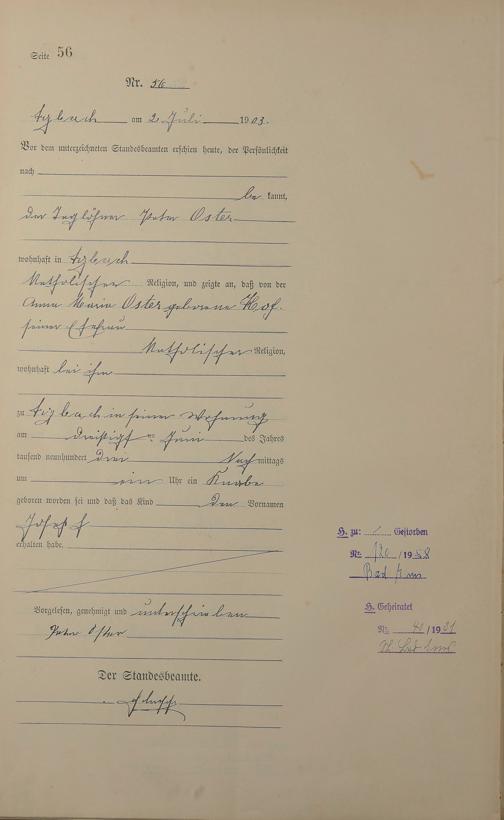 Seite 56
Nr. 56
Arzbach am 2 Juli 1903.
Vor dem unterzeichneten Standesbeamten erschien heute, der Persönlichkeit
nach
be kannt,
der Taglöhner Peter Oster
wohnhaft in Arzbach
Katholischer Religion, und zeigte an, daß von der
Anna Maria Oster geborene Hof.
seiner Ehefrau
Katholischer Religion,
wohnhaft bei ihm
zu Arzbach in seiner Wohnung
am dreißigsten Juni des Jahres
tausend neunhundert drei Nach mittags
um ein Uhr ein Knabe
geboren worden sei und daß das Kind den Vornamen
Josef
erhalten habe.
Vorgelesen, genehmigt und unterschrieben
Peter Oster
Der Standesbeamte.
H. zu: 1 Gestorben
Nr. 120 / 1958
Bad Ems
H. Geheiratet
Nr. 40 / 1931
Bad Ems